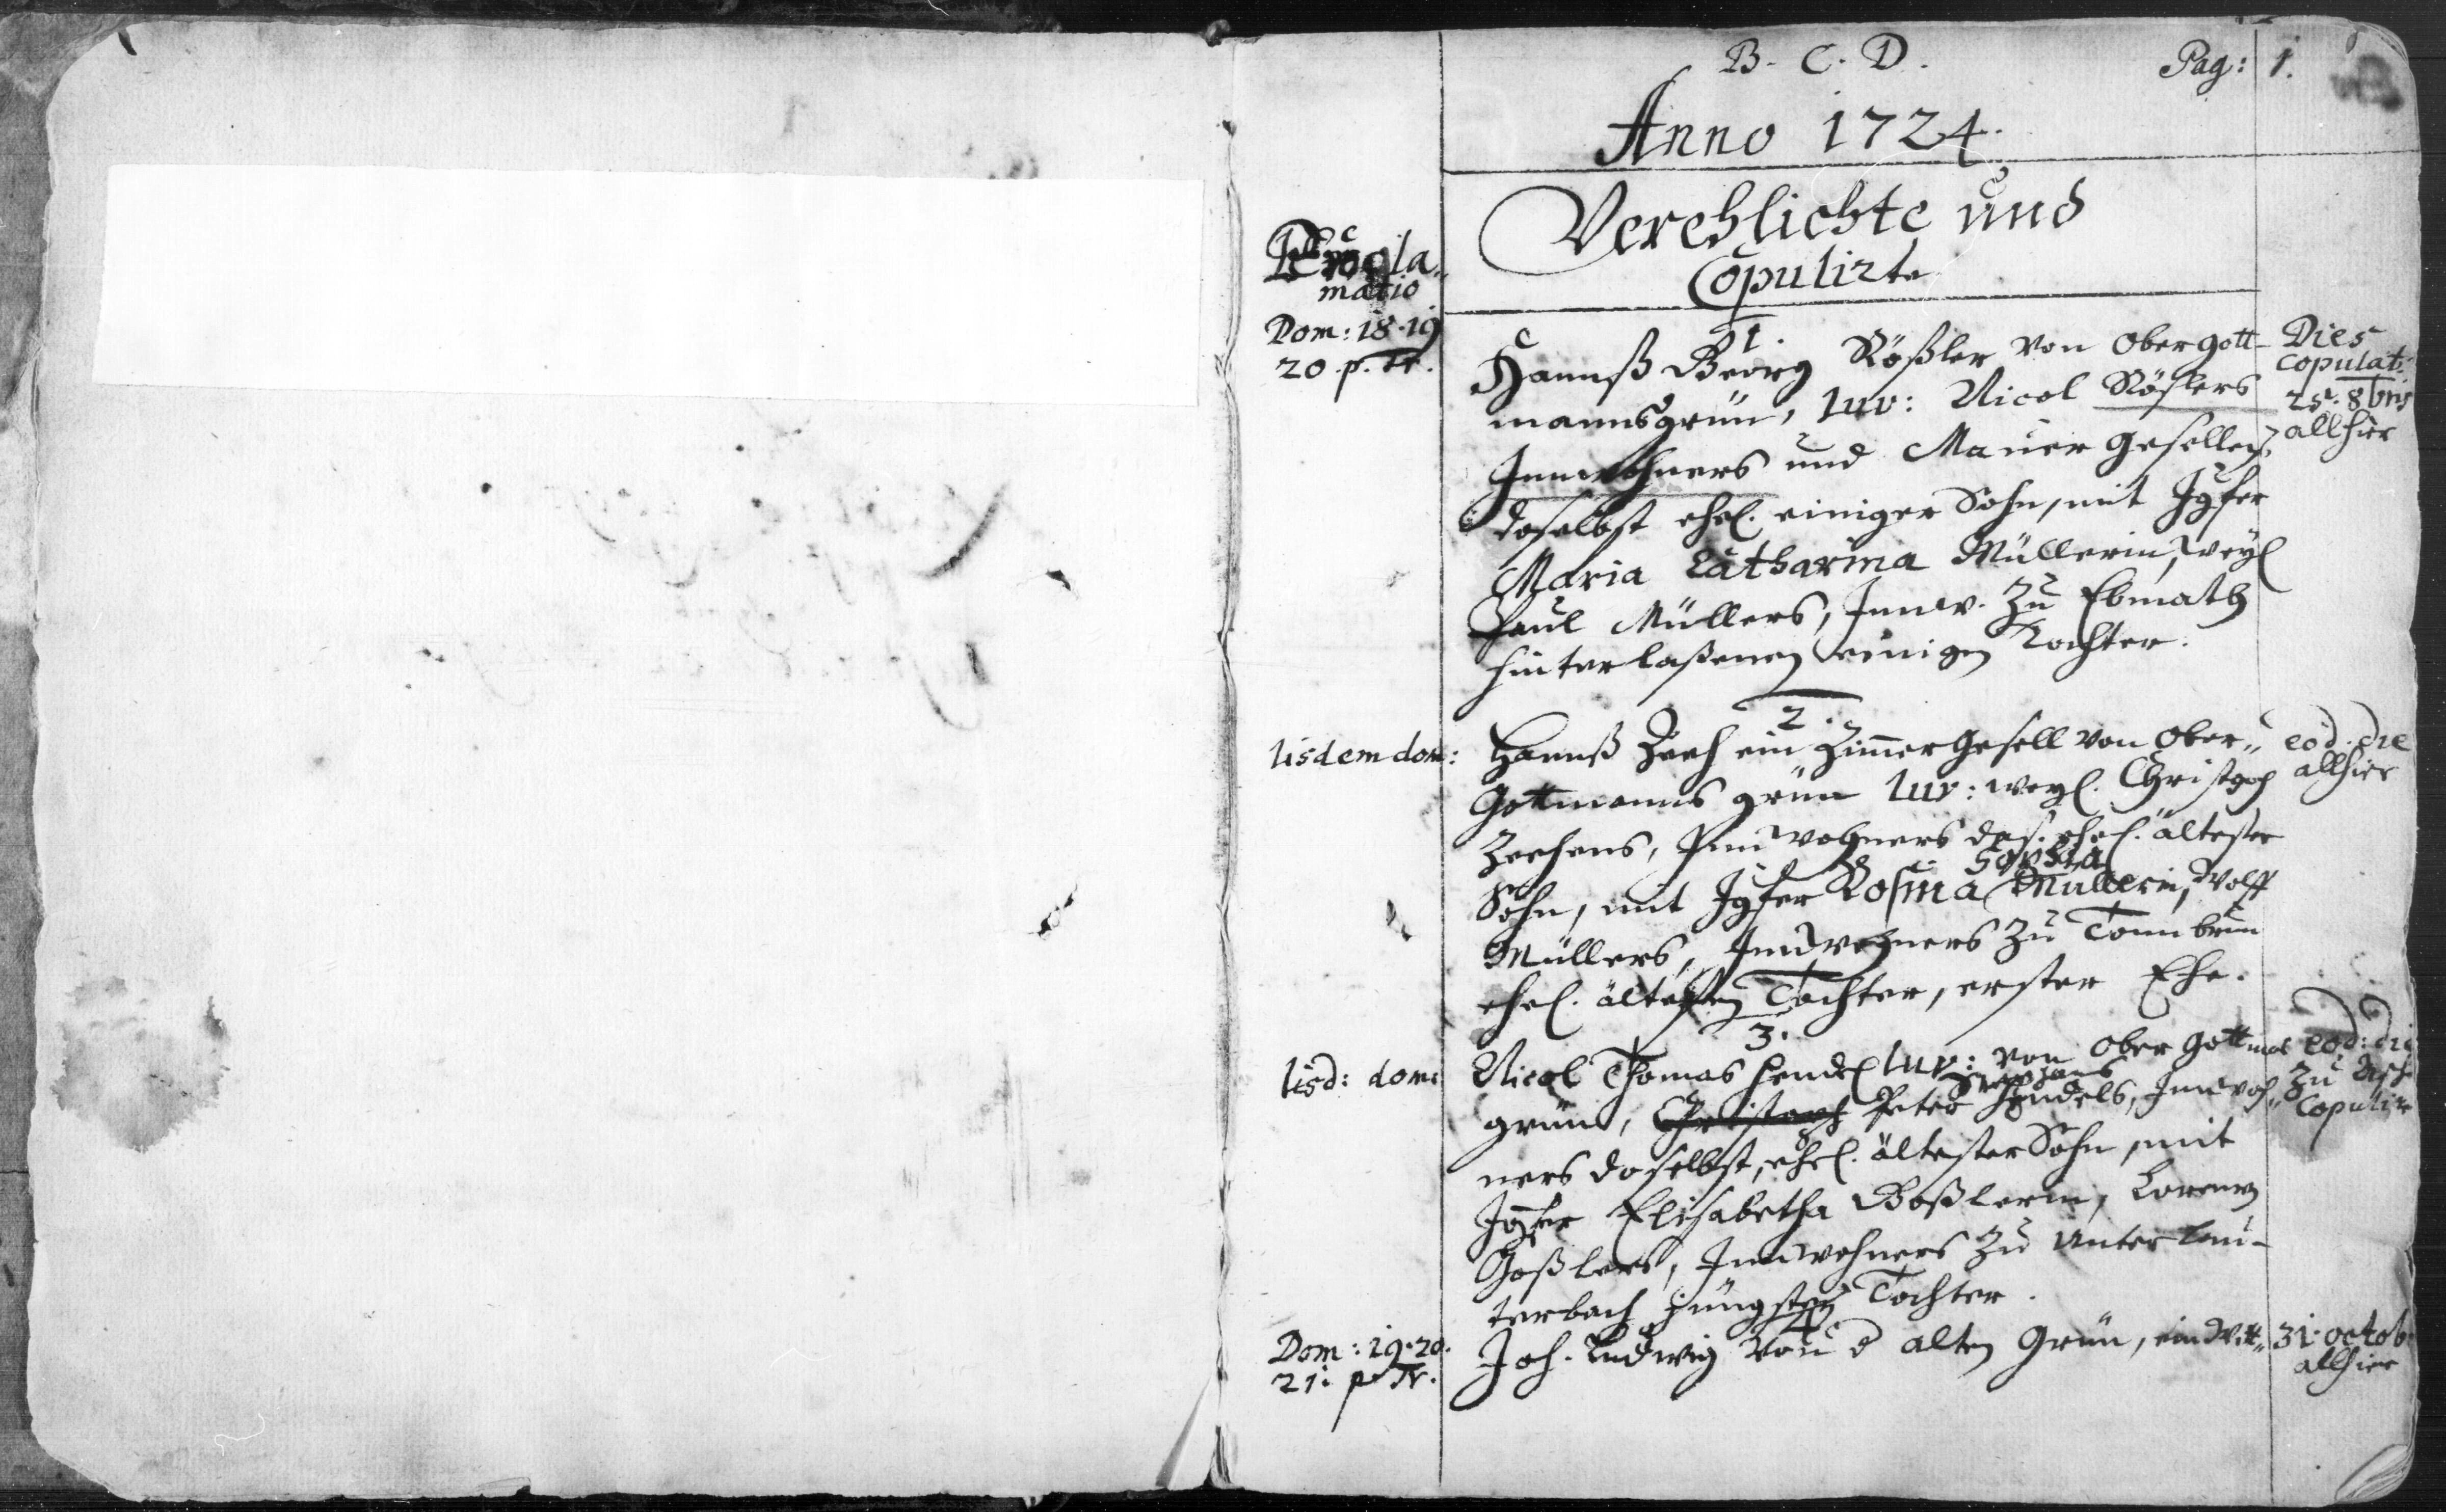 B. C. D. Pag: 1.
Anno 1724.
Verehlichte und
Copulirte
Procla-
matio
Dom: 18. 19
20. p. Tr.
1.
Hannß Georg Rößler von Obergott-
mannsgrün, luv: Nicol Rößlers
Innwohners und Maurer Gesellens
daselbst ehel. einiger Sohn, mit Jgfer
Maria Catharina Müllerin, weyl
Paul Müllers, Innw. zu Ebmath
hinterlaßenen einigen Tochter.
Dies
copulat:
25. 8bris
allhier
2.
Iisdem dom:
Hannß Zeeh ein Zimmer Gesell von Ober-
Gottmanns grün luv: weyl. Christoph
Zeehens, Innwohners das. ehel. ältester
Sohn, mit Jgfer Rosina Sophia Müllerin, Wolff
Müllers, Innwohners zu Tonnbrun
ehel. ältesten Tochter, erster Ehe.
eod. die
allhier
3.
Iisd: dom:
Nicol Thomas Hendel luv: von Ober Gottmas
grün, Christoph Peter Hendels, Innwoh-
ners daselbst, ehel. ältester Sohn, mit
Jgfer Elisabetha Goßlerin, Lorenz
Goßlers, Innwohners zu Unter Lau-
terbach jüngsten Tochter.
eod: die
zu Asch
Copulir
4
Dom: 19. 20.
21. p. Tr.
Joh. Ludwig von d alten Grün, ein Witt-
31. octob:
allhier